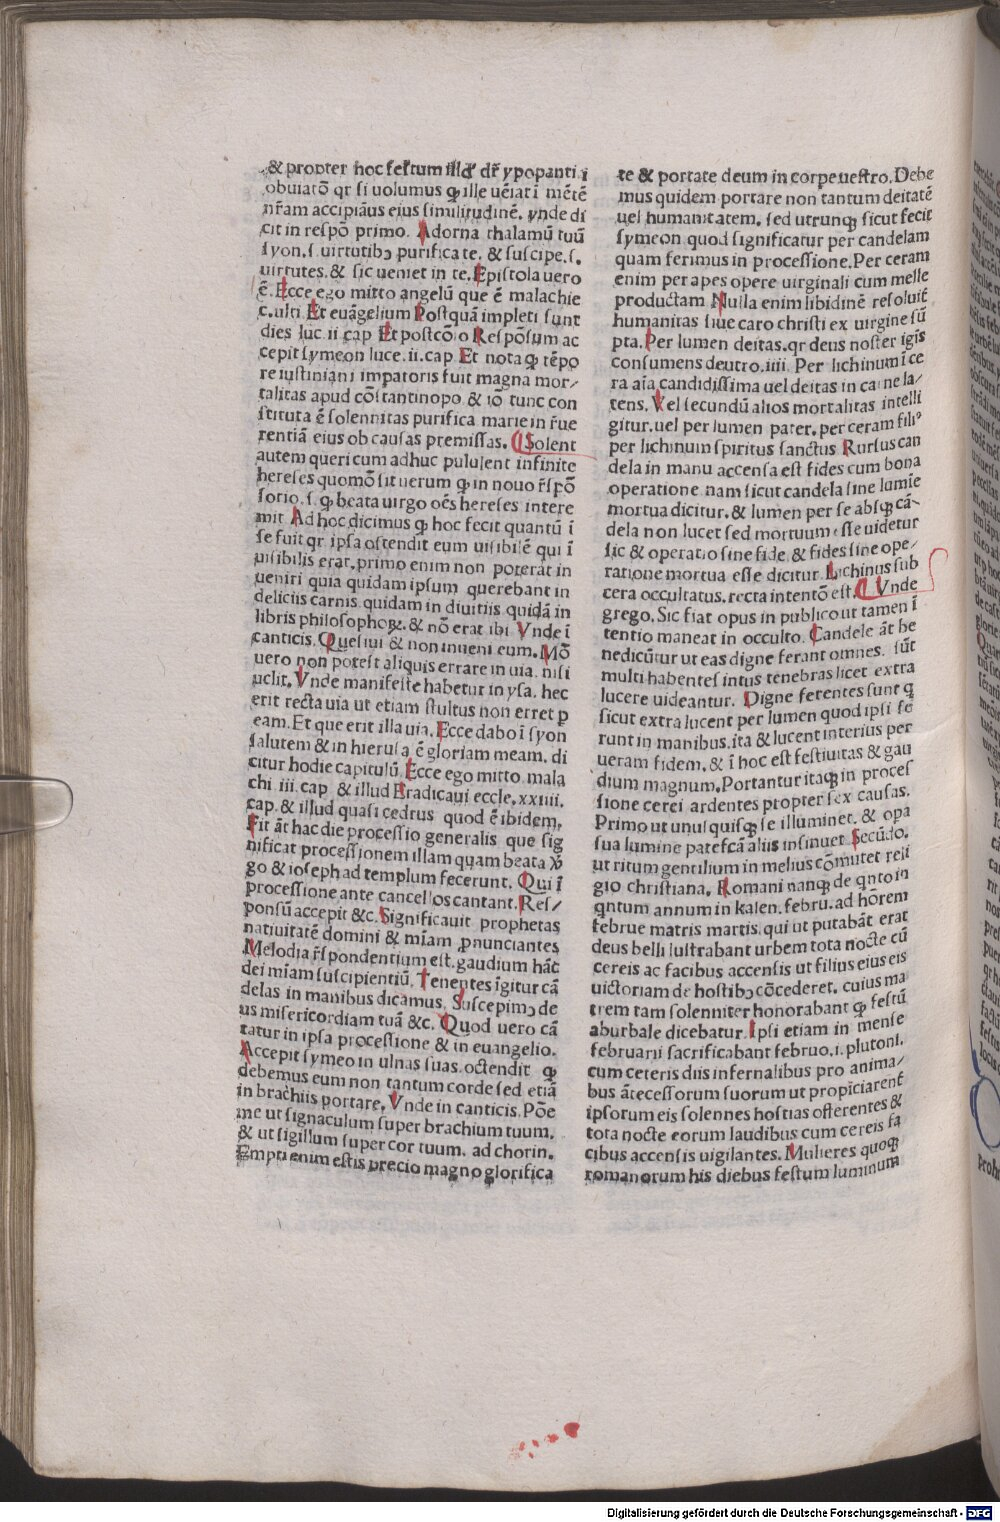 & propter hoc festum illd dr̄ ypopanti i
obuiatō qr si uolumus ꝙ ille uēiat ī mētē
nr̄am accipiāus eius similitudinē. vnde di
cit in respō primo. Adorna thalamū tuū
syon.s. uirtutibꝫ purificate. & suscipe.s.
uirtutes. & sic ueniet in te. Epistola uero
ē. Ecce ego mitto angelū que ē malachie
c. ulti. Et euāgelium Postquā impleti sunt
dies luc. ii. cap Et postcōio Respōsum ac
cepit symeon luce. ii. cap. Et nota ꝙ tēpo
re iustiniani impatoris fuit magna mor/
talitas apud cōstantinopo. & iō tunc con
stituta ē solennitas purifica marie in r̄ue
rentiā eius ob causas premissas. ¶ Solent
autem queri cum adhuc pululent infinite
hereses quomō sit uerum ꝙ in nouo r̄spō
sorio. s. ꝙ beata uirgo oēs hereses intere
mit. Ad hoc dicimus ꝙ hoc fecit quantū ī
se fuit qr ipsa ostendit eum uisibilē qui ī
uisibilis erat. primo enim non poterat in
ueniri quia quidam ipsum querebant in
deliciis carnis. quidam in diuitiis quidā in
libris philosophoꝝ. & nō erat ibi Vnde ī
canticis. Quesiui & non inueni eum. Mō
uero non potest aliquis errare in uia. nisi
uelit. Vnde manifeste habetur in ysa. hec
erit recta uia ut etiam stultus non erret p
eam. Et que erit illa uia. Ecce dabo ī syon
salutem & in hierusa ē gloriam meam. di
citur hodie capitulū. Ecce ego mitto. mala
chi. iii. cap. & illud Eradicaui eccle. xxiiii.
cap. & illud quasi cedrus quod ē ibidem.
Fit āt hac die processio generalis que sig
nificat processionem illam quam beata v̄
go & ioseph ad templum fecerunt. Qui ī
processione ante cancellos cantant. Res/
ponsū accepit &c. Significauit prophetas
natiuitatē domini & mīam ꝓnunciantes
Melodia r̄spondentium est. gaudium hāc
dei mīam suscipientiū. Tenentes īgitur cā
delas in manibus dicamus. Suscepimꝯ de
us misericordiam tuā &c. Quod uero cā
tatur in ipsa processione & in euangelio.
Accepit symeo in ulnas suas. octendit ꝙ
debemus eum non tantum corde sed etiā
in brachiis portare. Vnde in canticis. Pōe
me ut signaculum super brachium tuum.
& ut sigillum super cor tuum. ad chorin.
Empti enim estis precio magno glorifica
te & portate deum in corpe uestro. Debe
mus quidem portare non tantum deitatē
uel humanitatem. sed utrunqꝫ sicut fecit
symeon quod significatur per candelam
quam ferimus in processione. Per ceram
enim per apes opere uirginali cum melle
productam Nulla enim libidinē resoluit
humanitas siue caro christi ex uirgine sū
pta. Per lumen deitas. qr deus noster igīs
consumens deutro. iiii. Per lichinum ī ce
ra aīa candidissima uel deitas in carne la/
tens. Vel secundū alios mortalitas intelli
gitur. uel per lumen pater. per ceram filiꝰ
per lichinum spiritus sanctus Rursus can
dela in manu accensa est fides cum bona
operatione. nam sicut candela sine lumīe
mortua dicitur. & lumen per se absqꝫ cā-
dela non lucet sed mortuum esse uidetur
sic & operatio sine fide. & fides sine ope/
ratione mortua esse dicitur. Lichinus sub
cera occultatus. recta intentō est. ¶ Vnde
grego. Sic fiat opus in publico ut tamen ī
tentio maneat in occulto. Candele āt be
nedicūtur ut eas digne ferant omnes. sūt
multi habentes intus tenebras licet extra
lucere uideantur. Digne ferentes sunt q
sicut extra lucent per lumen quod ipsi fe
runt in manibus. ita & lucent interius per
ueram fidem. & ī hoc est festiuitas & gau
dium magnum. Portantur itaqꝫ in proces
sione cerei ardentes propter sex causas.
Primo ut unusquisqꝫ se illuminet. & opa
sua lumine patefcā aliis insinuet Secūdo.
ut ritum gentilium in melius cōmutet reli
gio christiana. Romani nanqꝫ de qnto in
qntum annum in kalen. febru. ad hōrem
februe matris martis. qui ut putabāt erat
deus belli lustrabant urbem tota nocte cū
cereis ac facibus accensis ut filius eius eis
uictoriam de hostibꝫ cōcederet. cuius ma
trem tam solenniter honorabant ꝙ festū
aburbale dicebatur. Ipsi etiam in mense
februarii sacrificabant februo. i. plutoni.
cum ceteris diis infernalibus pro anima/
bus ātecessorum suorum ut propiciarent̄
ipsorum eis solennes hostias offerentes &
tota nocte eorum laudibus cum cereis fa
cibus accensis uigilantes. Mulieres quoqꝫ
romanorum his diebus festum luminum
Digitalisierung gefördert durch die Deutsche Forschungsgemeinschaft - DFG